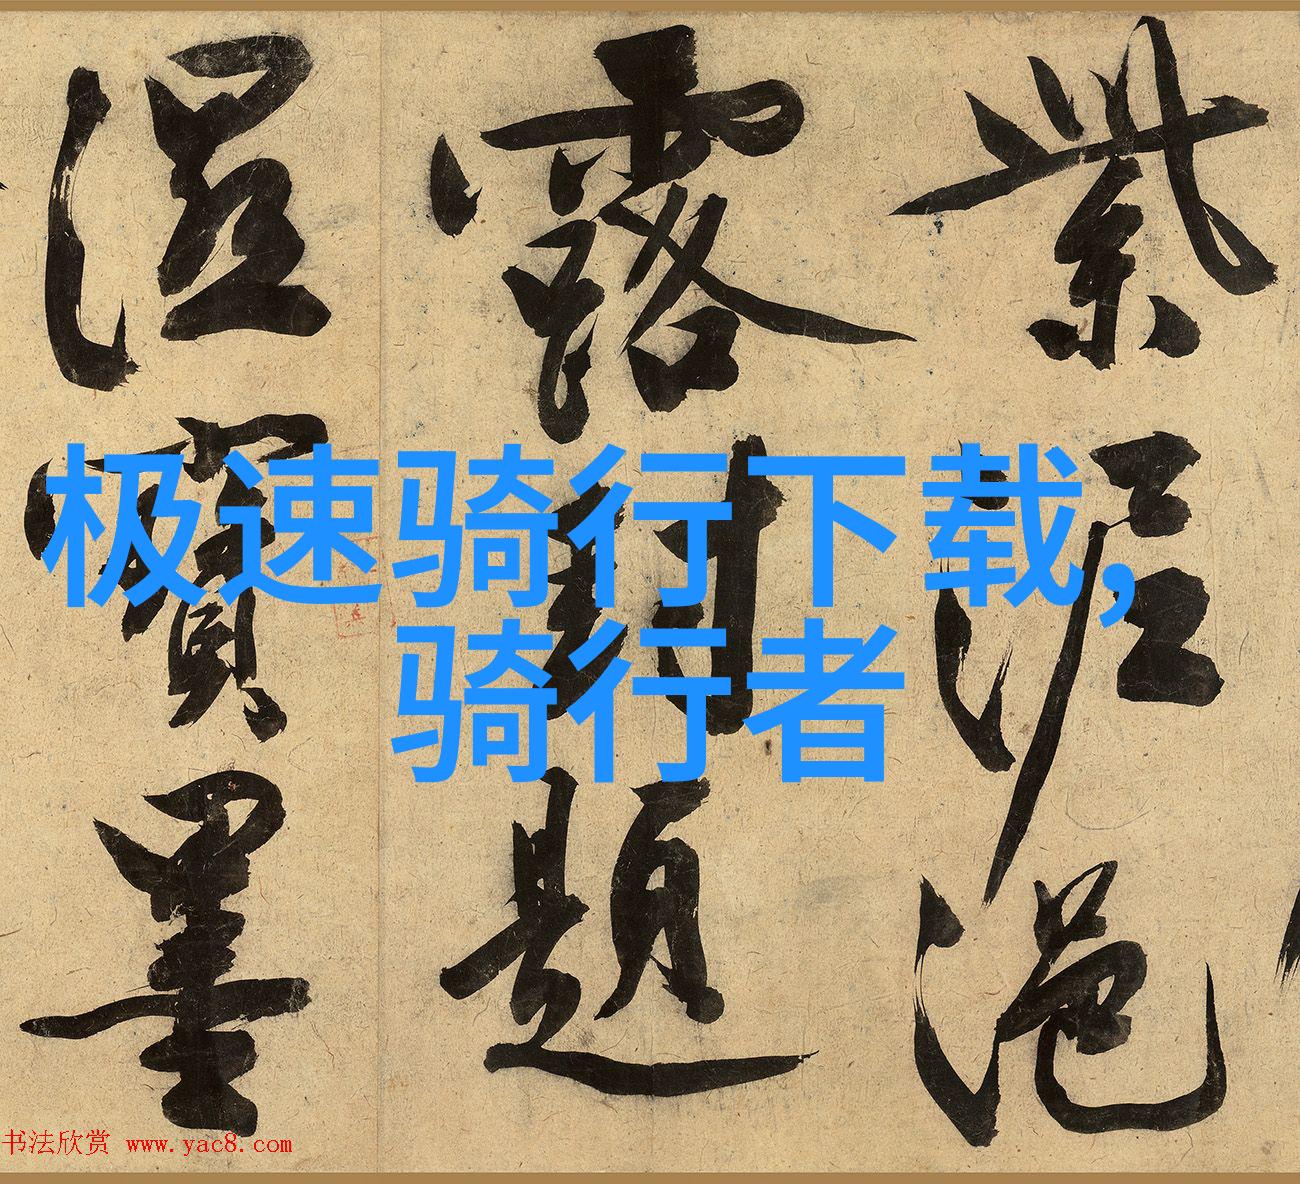 极速骑行下载,
骑行者
紫泥浥
露封題
濕寶墨
书法欣赏 www.yac8.com